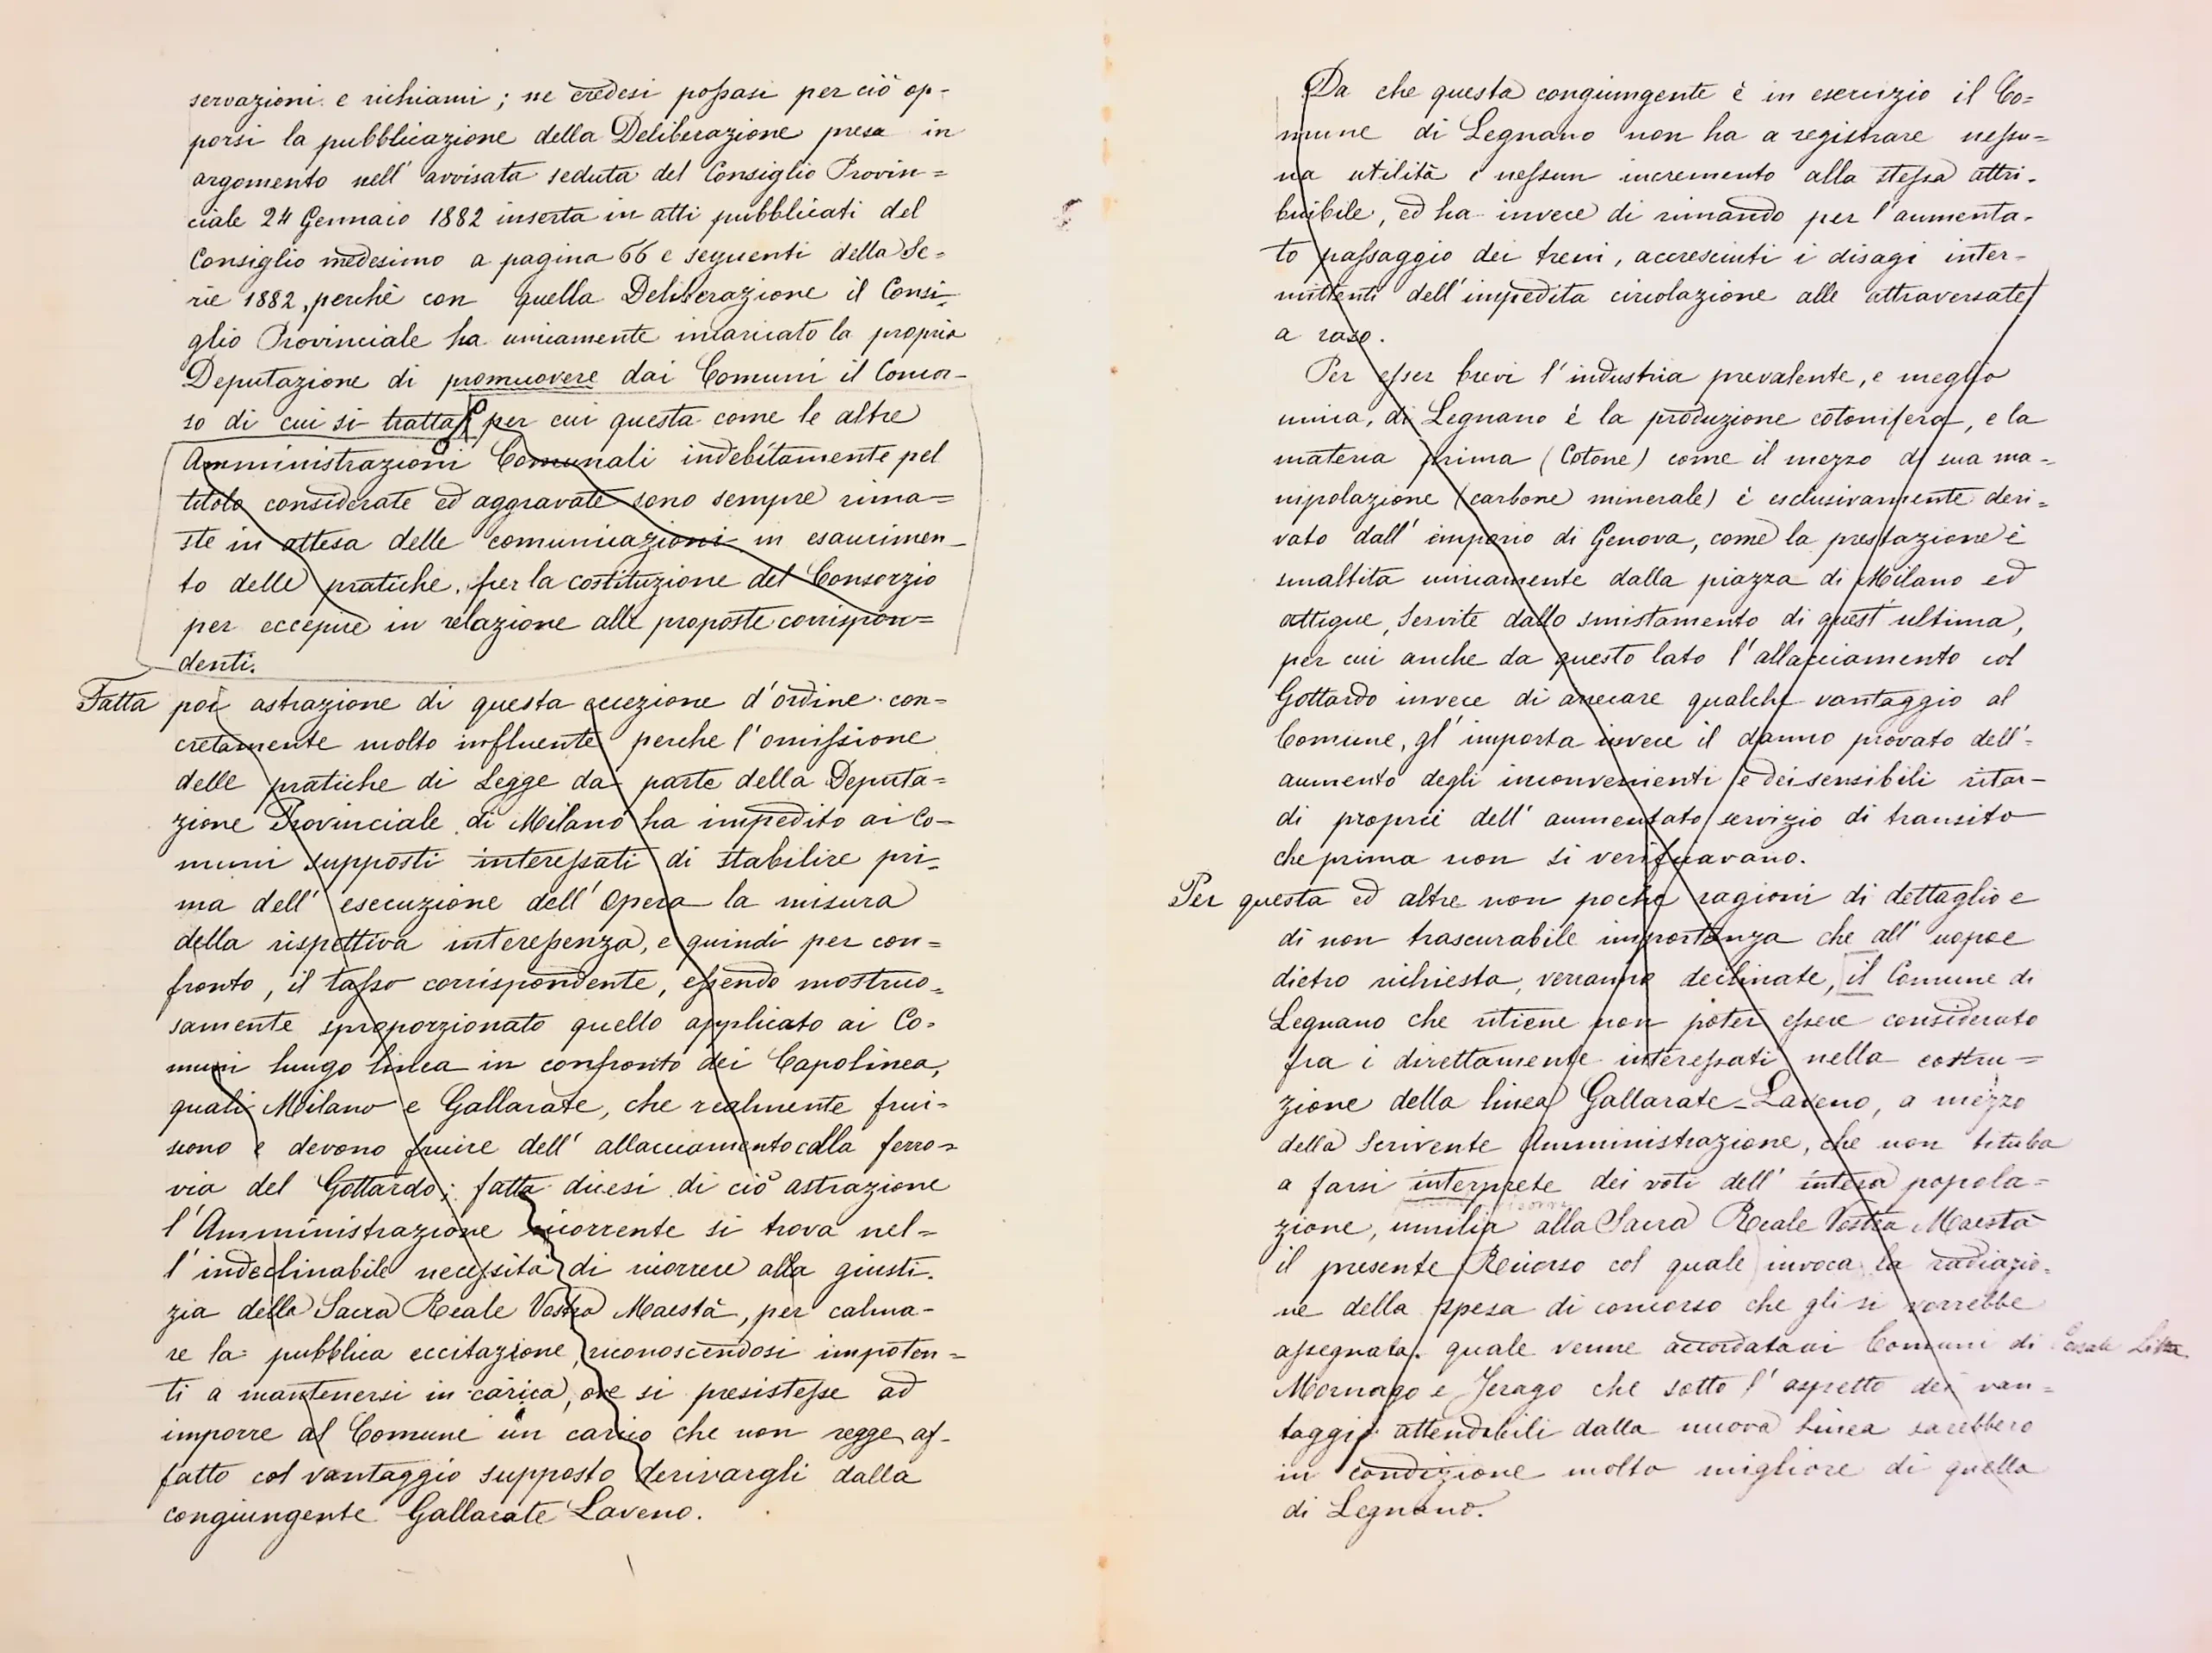 servazioni e richiami; ne credesi possasi per ciò op-
porsi la pubblicazione della Deliberazione presa in
argomento nell' avvisata seduta del Consiglio Provin=
ciale 24 Gennaio 1882 inserta in atti pubblicati del
Consiglio medesimo a pagina 66 e seguenti della Se=
rie 1882, perchè con quella Deliberazione il Consi-
glio Provinciale ha unicamente incaricato la propria
Deputazione di promuovere dai Comuni il Concor-
so di cui si tratta, per cui questa come le altre
Amministrazioni Comunali indebitamente pel
titolo considerate ed aggravate sono sempre rima=
ste in attesa delle comunicazioni in esaurimen-
to delle pratiche, per la costituzione del Consorzio
per eccepire in relazione alle proposte corrispon=
denti.
Fatta poi astrazione di questa eccezione d'ordine con=
cretamente molto influente perche l'omissione
delle pratiche di Legge da parte della Deputa=
zione Provinciale di Milano ha impedito ai Co-
muni supposti interessati di stabilire pri-
ma dell' esecuzione dell' Opera la misura
della rispettiva interessenza, e quindi per con=
fronto, il tasso corrispondente, essendo mostruo=
samente sproporzionato quello applicato ai Co=
muni lungo linea in confronto dei Capolinea,
quali Milano e Gallarate, che realmente frui-
scono e devono fruire dell' allacciamento colla ferro=
via del Gottardo; fatta dicesi di ciò astrazione
l'Amministrazione ricorrente si trova nel=
l'indeclinabile necessità di ricorrere alla giusti-
zia della Sacra Reale Vostra Maestà, per calma-
re la pubblica eccitazione, riconoscendosi impoten=
ti a mantenersi in carica, ove si presistesse ad
imporre al Comune un carico che non regge af-
fatto col vantaggio supposto derivargli dalla
congiungente Gallarate Laveno.
Da che questa congiungente è in esercizio il Co=
mune di Legnano non ha a registrare nessu=
na utilità e nessun incremento alla stessa attri-
buibile, ed ha invece di rimando per l'aumenta-
to passaggio dei treni, accresciuti i disagi inter-
mittenti dell'impedita circolazione alle attraversate
a raso.
Per esser brevi l'industria prevalente, e meglio
unica, di Legnano è la produzione cotonifera, e la
materia prima (Cotone) come il mezzo di sua ma=
nipolazione (carbone minerale) è esclusivamente deri=
vato dall' emporio di Genova, come la prestazione è
smaltita unicamente dalla piazza di Milano ed
attigue, servite dallo smistamento di quest'ultima,
per cui anche da questo lato l'allacciamento col
Gottardo invece di arrecare qualche vantaggio al
Comune, gl'importa invece il danno provato dell'=
aumento degli inconvenienti e dei sensibili ritar-
di proprii dell' aumentato servizio di transito
che prima non si verificavano.
Per questa ed altre non poche ragioni di dettaglio e
di non trascurabile importanza che all' uopoe
dietro richiesta, verranno declinate, il Comune di
Legnano che ritiene non poter essere considerato
fra i direttamente interessati nella costru=
zione della linea Gallarate-Laveno, a mezzo
della Scrivente Amministrazione, che non tituba
a farsi interprete dei voti dell' intera popola=
zione, umilia alla Sacra Reale Vostra Maestà
il presente Ricorso col quale invoca la radiazio-
ne della spesa di concorso che gli si vorrebbe
assegnata. quale venne accordata ai Comuni di Casale Litta
Mornago e Jerago che sotto l'aspetto dei van=
taggi attendibili dalla nuova linea sarebbero
in condizione molto migliore di quella
di Legnano.